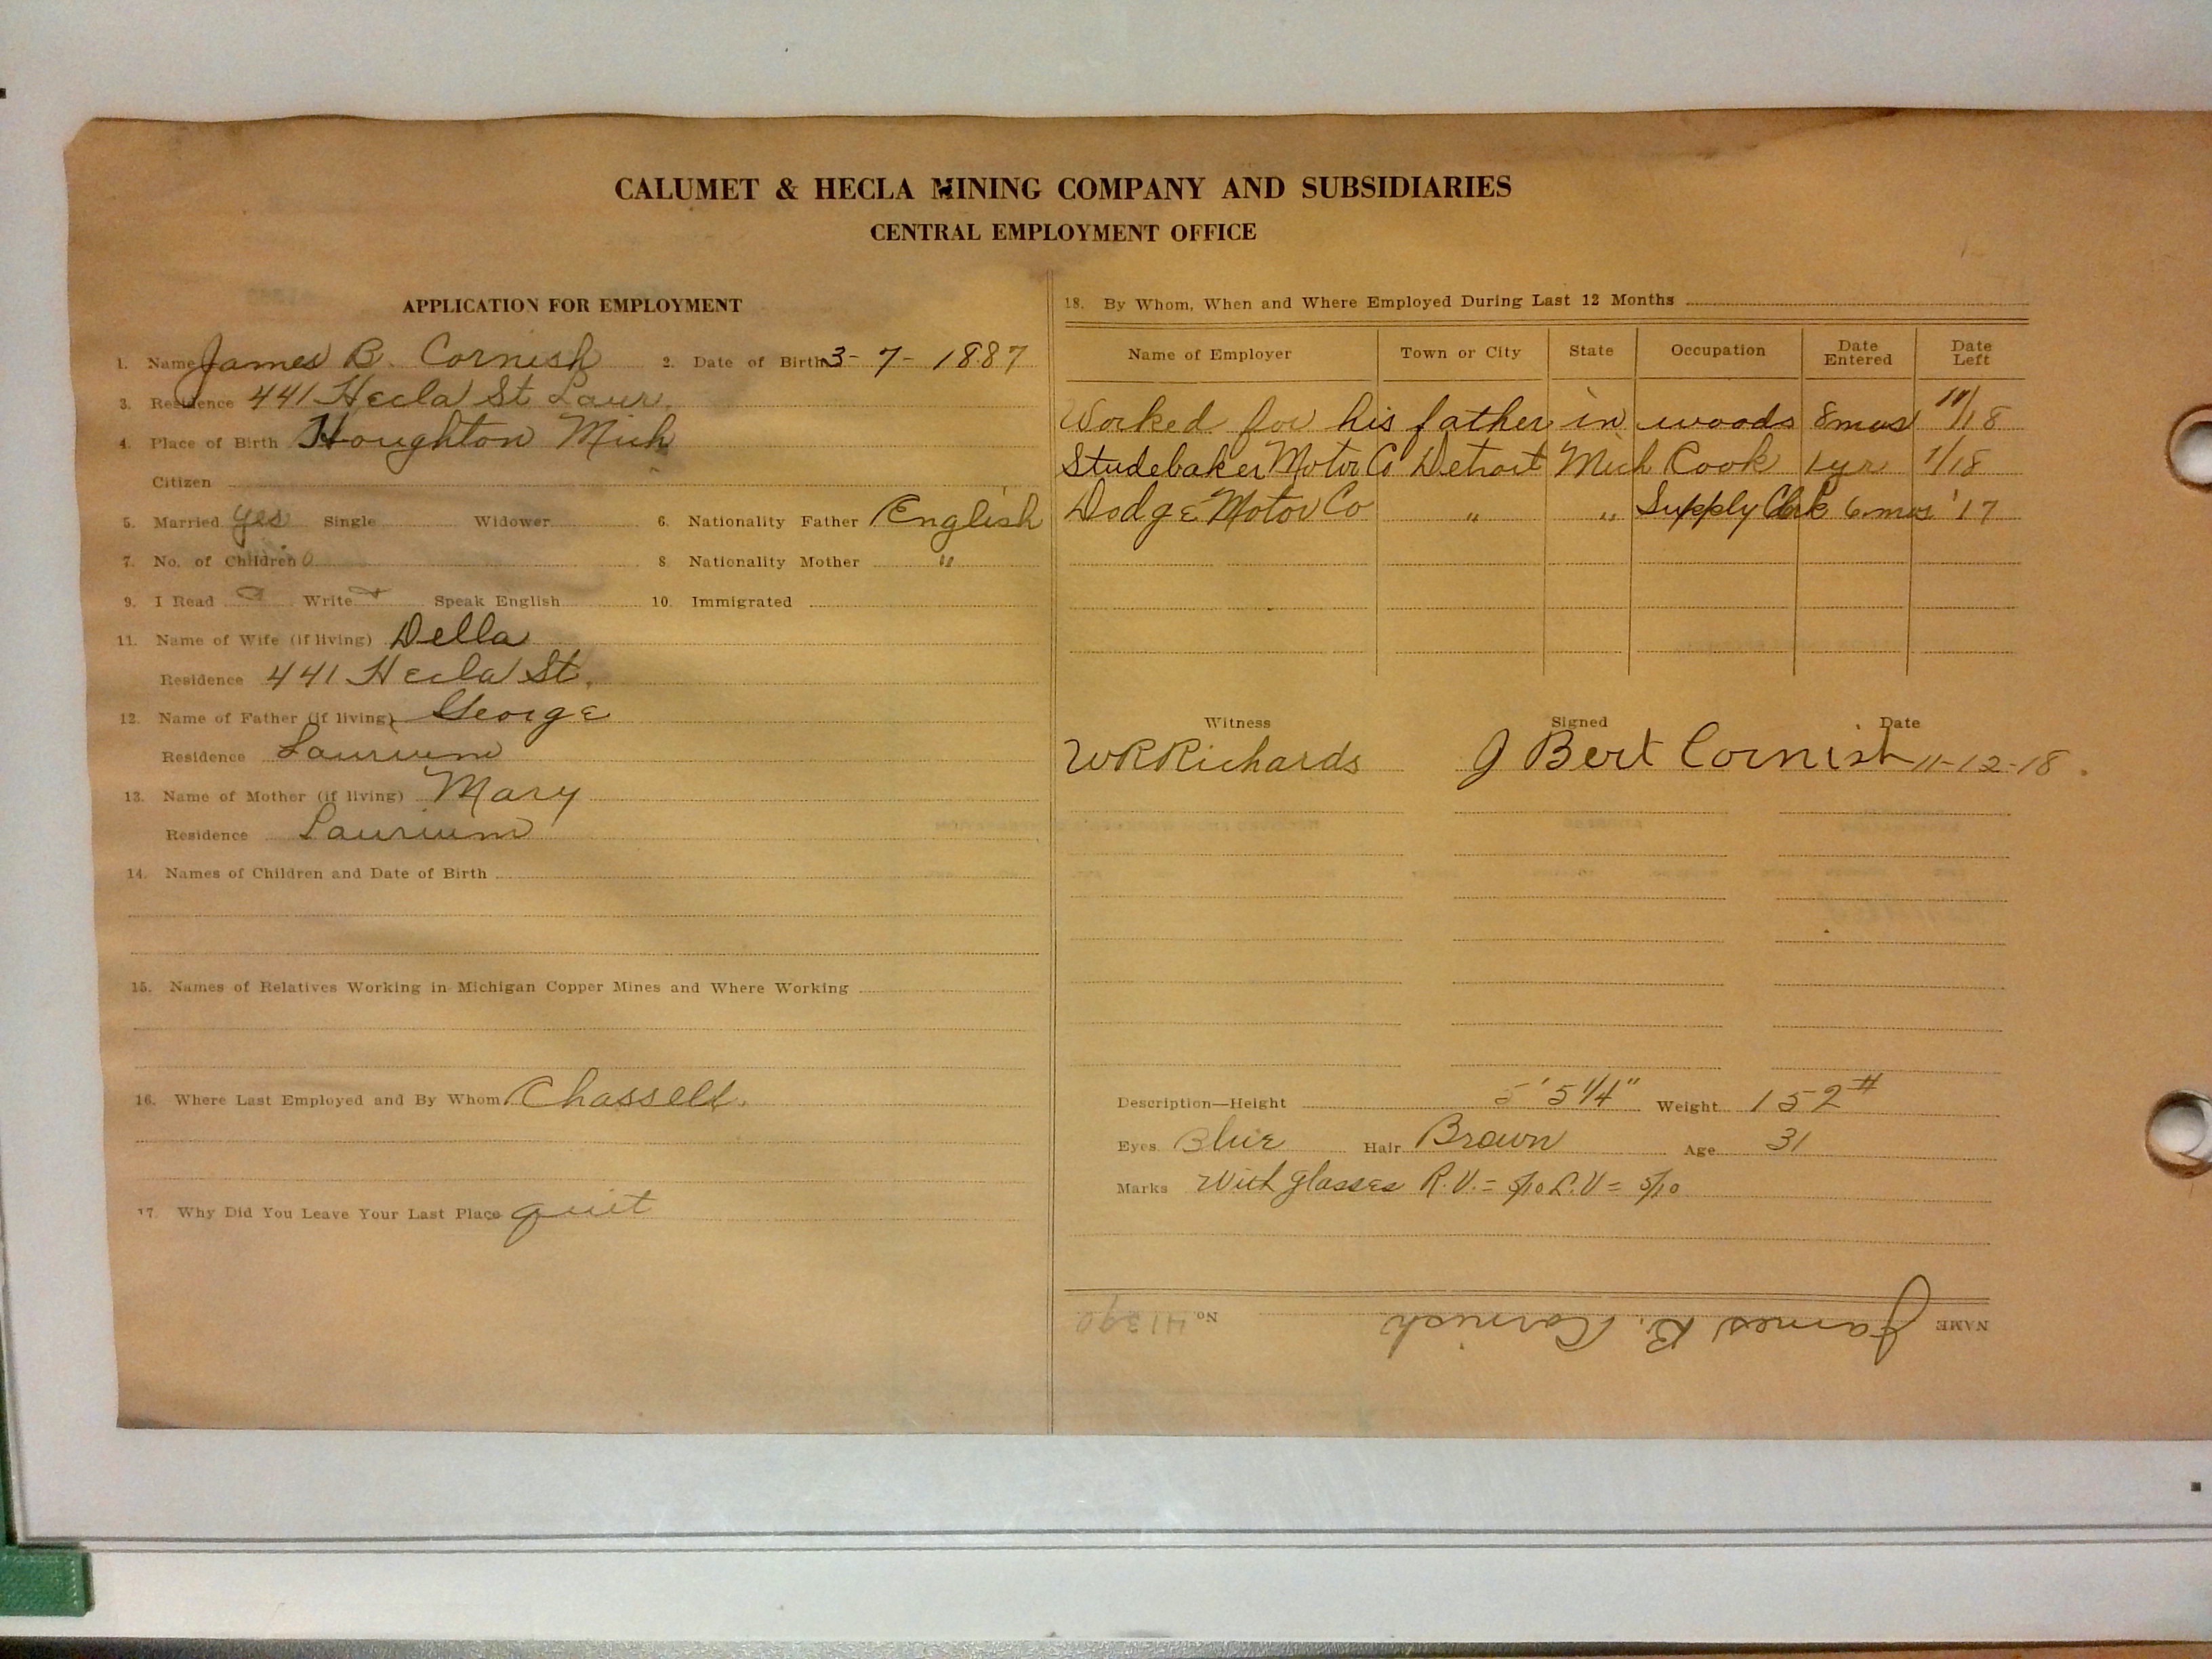 CALUMET & HECLA MINING COMPANY AND SUBSIDIARIES
CENTRAL EMPLOYMENT OFFICE
APPLICATION FOR EMPLOYMENT
1. Name James B. Cornish 2. Date of Birth 3-7-1887
3. Residence 441 Hecla St Laur.
4. Place of Birth Houghton Mich
Citizen
5. Married yes Single Widower 6. Nationality Father English
7. No. of Children 0 8. Nationality Mother "
9. I Read Write Speak English 10. Immigrated
11. Name of Wife (if living) Della
Residence 441 Hecla St.
12. Name of Father (if living) George
Residence Laurium
13. Name of Mother (if living) Mary
Residence Laurium
14. Names of Children and Date of Birth
15. Names of Relatives Working in Michigan Copper Mines and Where Working
16. Where Last Employed and By Whom Chassell.
17. Why Did You Leave Your Last Place quit
18. By Whom, When and Where Employed During Last 12 Months
Name of Employer Town or City State Occupation Date Entered Date Left
Worked for his father in woods 8 mos /18
Studebaker Motor Co Detroit Mich Cook 1 yr 1/18
Dodge Motor Co " " Supply Clerk 6 mos '17
Witness Signed Date
WR Richards J Bert Cornish 11-12-18
Description—Height 5' 5 1/4" Weight 152#
Eyes Blue Hair Brown Age 31
Marks With glasses R.V. = 5/10 L.V = 5/10
NAME James B. Cornish No. 41390